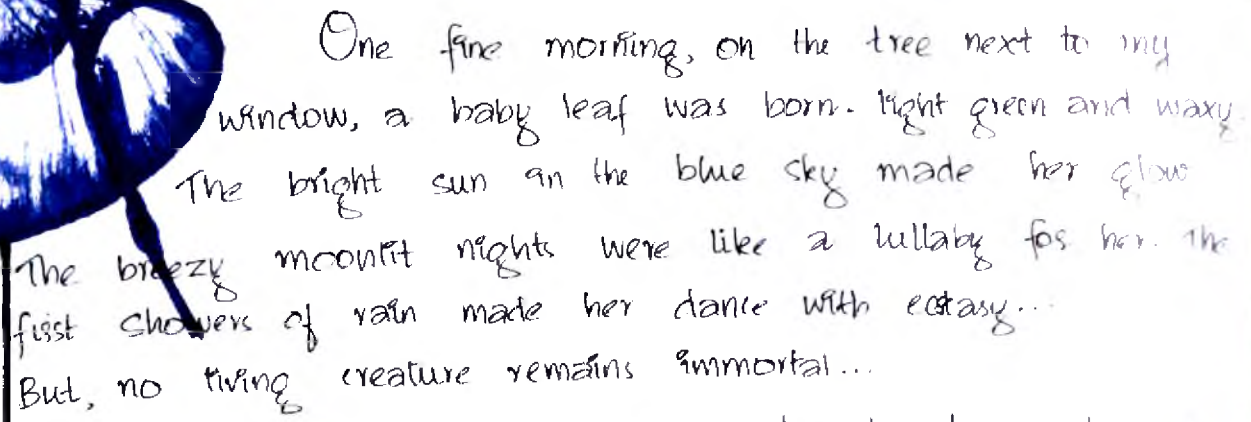 One fine morning, on the tree next to my
window, a baby leaf was born. light green and waxy.
The bright sun in the blue sky made her glow
The breezy moonlit nights were like a lullaby for her. The
first showers of rain made her dance with ecstasy...
But, no living creature remains immortal...